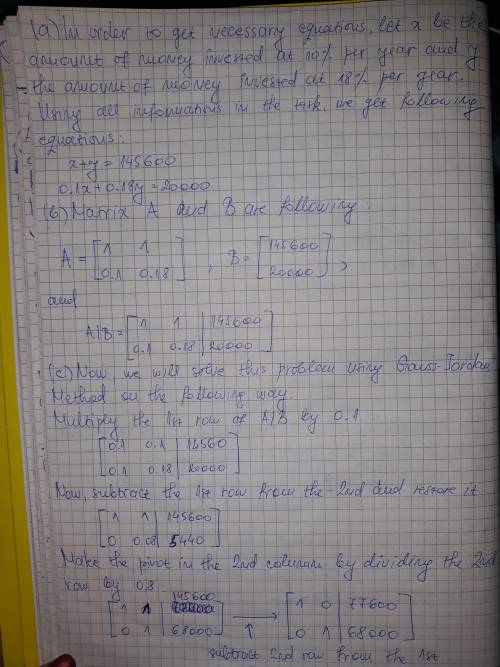 (a) In order to get necessary equations, let x be the
amount of money invested at 10% per year and y
the amount of money invested at 18% per year.
Using all informations in the task, we get following
equations:
x+y=145600
0.1x+0.18y=20000
(b) Matrix A and B are following:
A = [1 1; 0.1 0.18], B = [145600; 20000],
and
A|B = [1 1 | 145600; 0.1 0.18 | 20000]
(c) Now, we will solve this problem using Gauss-Jordan
Method on the following way:
Multiply the 1st row of A|B by 0.1
[0.1 0.1 | 14560; 0.1 0.18 | 20000]
Now, subtract the 1st row from the 2nd and restore it
[1 1 | 145600; 0 0.08 | 5440]
Make the pivot in the 2nd column by dividing the 2nd
row by 0.8
[1 1 | 145600; 0 1 | 68000] → [1 0 | 77600; 0 1 | 68000]
↑
subtract 2nd row from the 1st